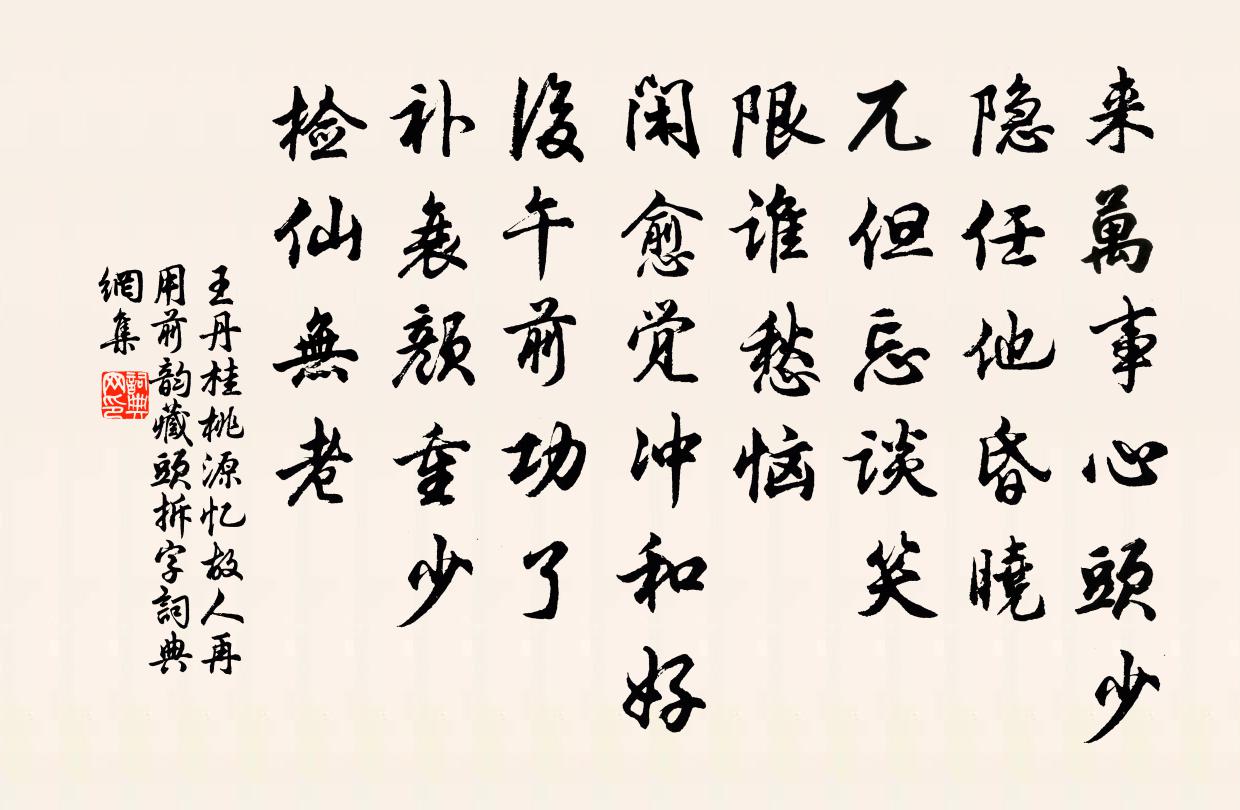 来萬事心頭少
隐任他昏曉
兀但忘谈笑
限谁愁恼
闲愈觉冲和好
後午前功了
补衰颜重少
检仙無老
王丹桂桃源忆故人再
用前韵藏頭拆字詞典
網集
詞典
网印